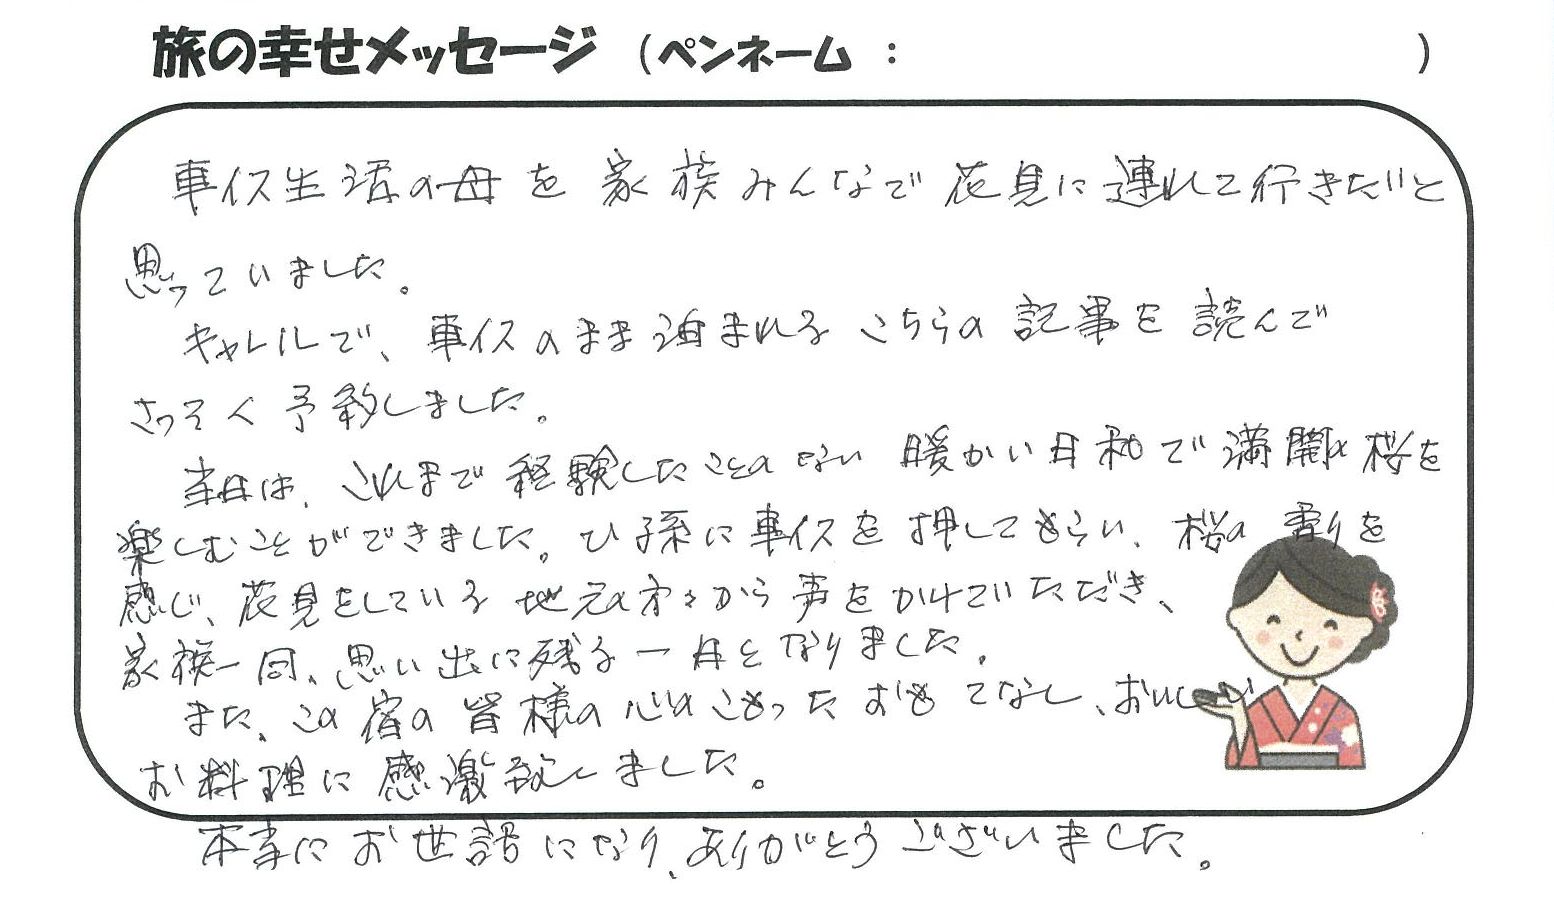 旅の幸せメッセージ (ペンネーム : )
車イス生活の母を家族みんなで花見に連れて行きたいと
思っていました。
キャレルで、車イスのまま泊まれるこちらの記事を読んで
さっそく予約しました。
当日は、これまで経験したことのない暖かい日和で満開の桜を
楽しむことができました。ひ孫に車イスを押してもらい、桜の香りを
感じ、花見をしている地元の方々から声をかけていただき、
家族一同、思い出に残る一日となりました。
また、この宿の皆様の心のこもったおもてなし、おいしい
お料理に感激致しました。
本当にお世話になり、ありがとうございました。